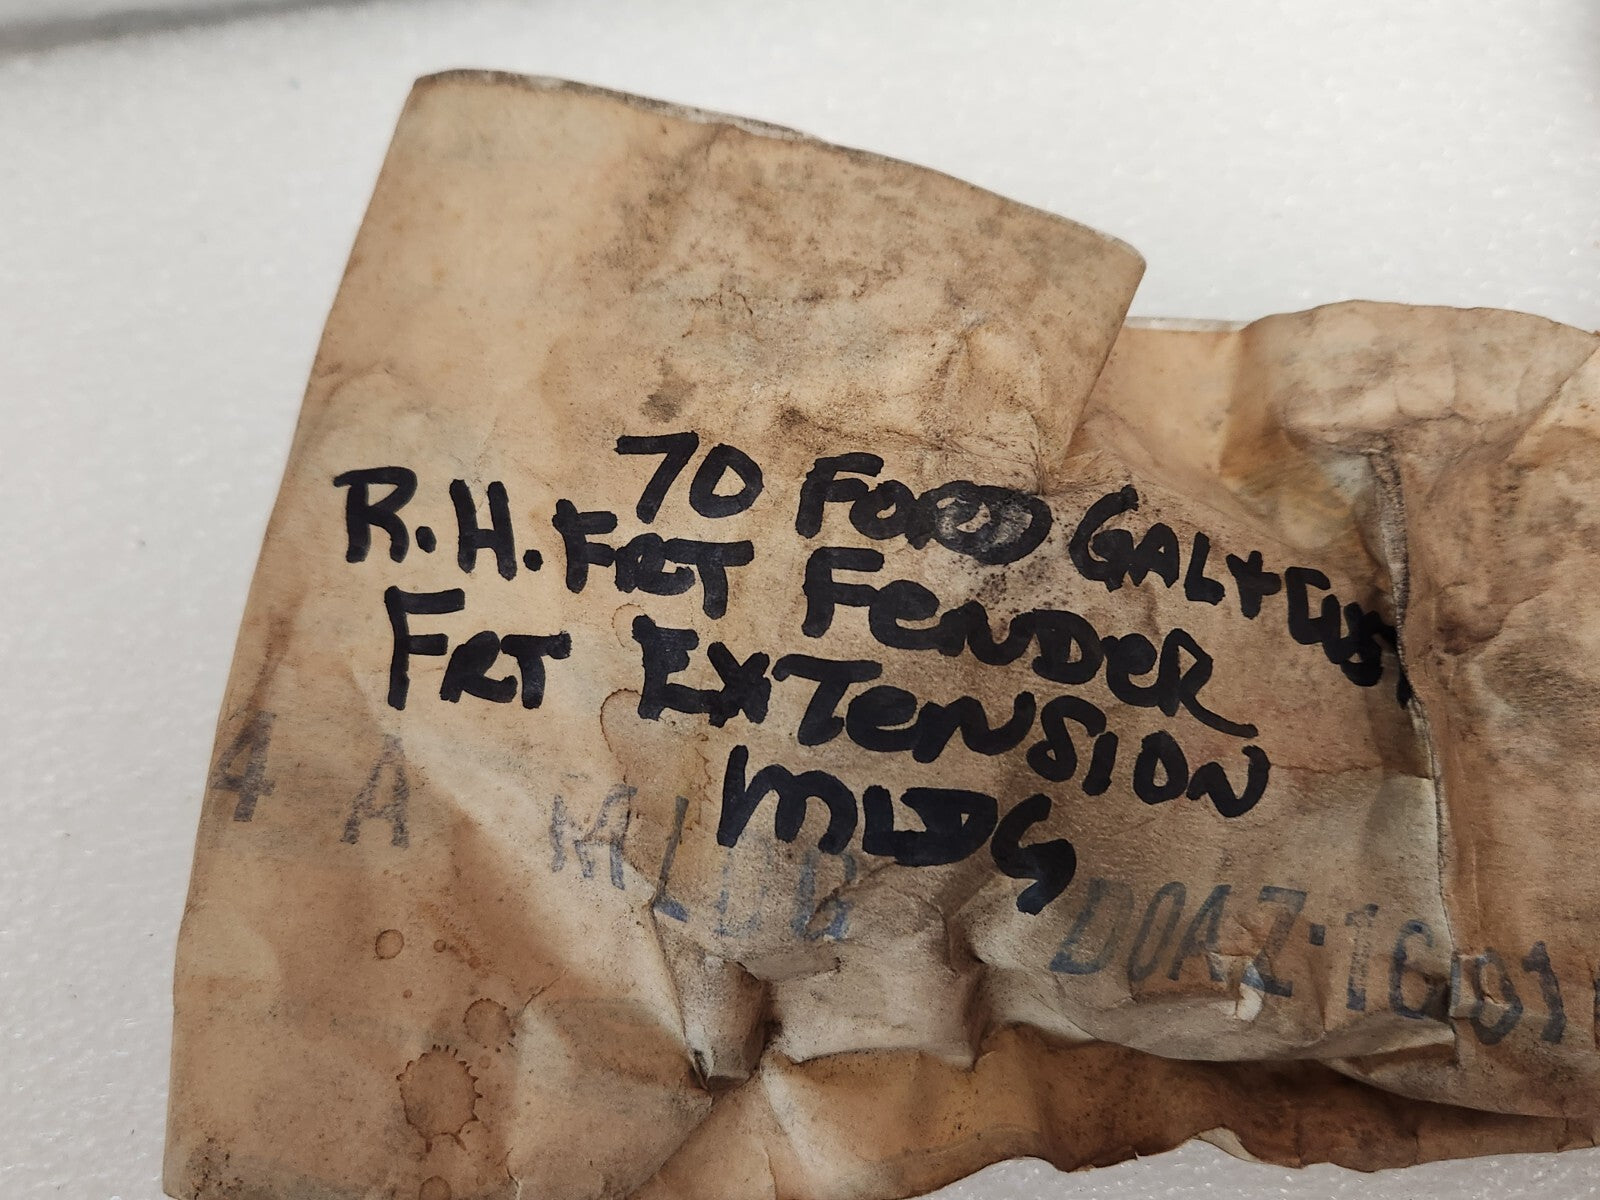 70 FORD GAL + CUST
R.H. FRT FENDER
FRT EXTENSION
MLDG
4 A MLDG D0AZ·16